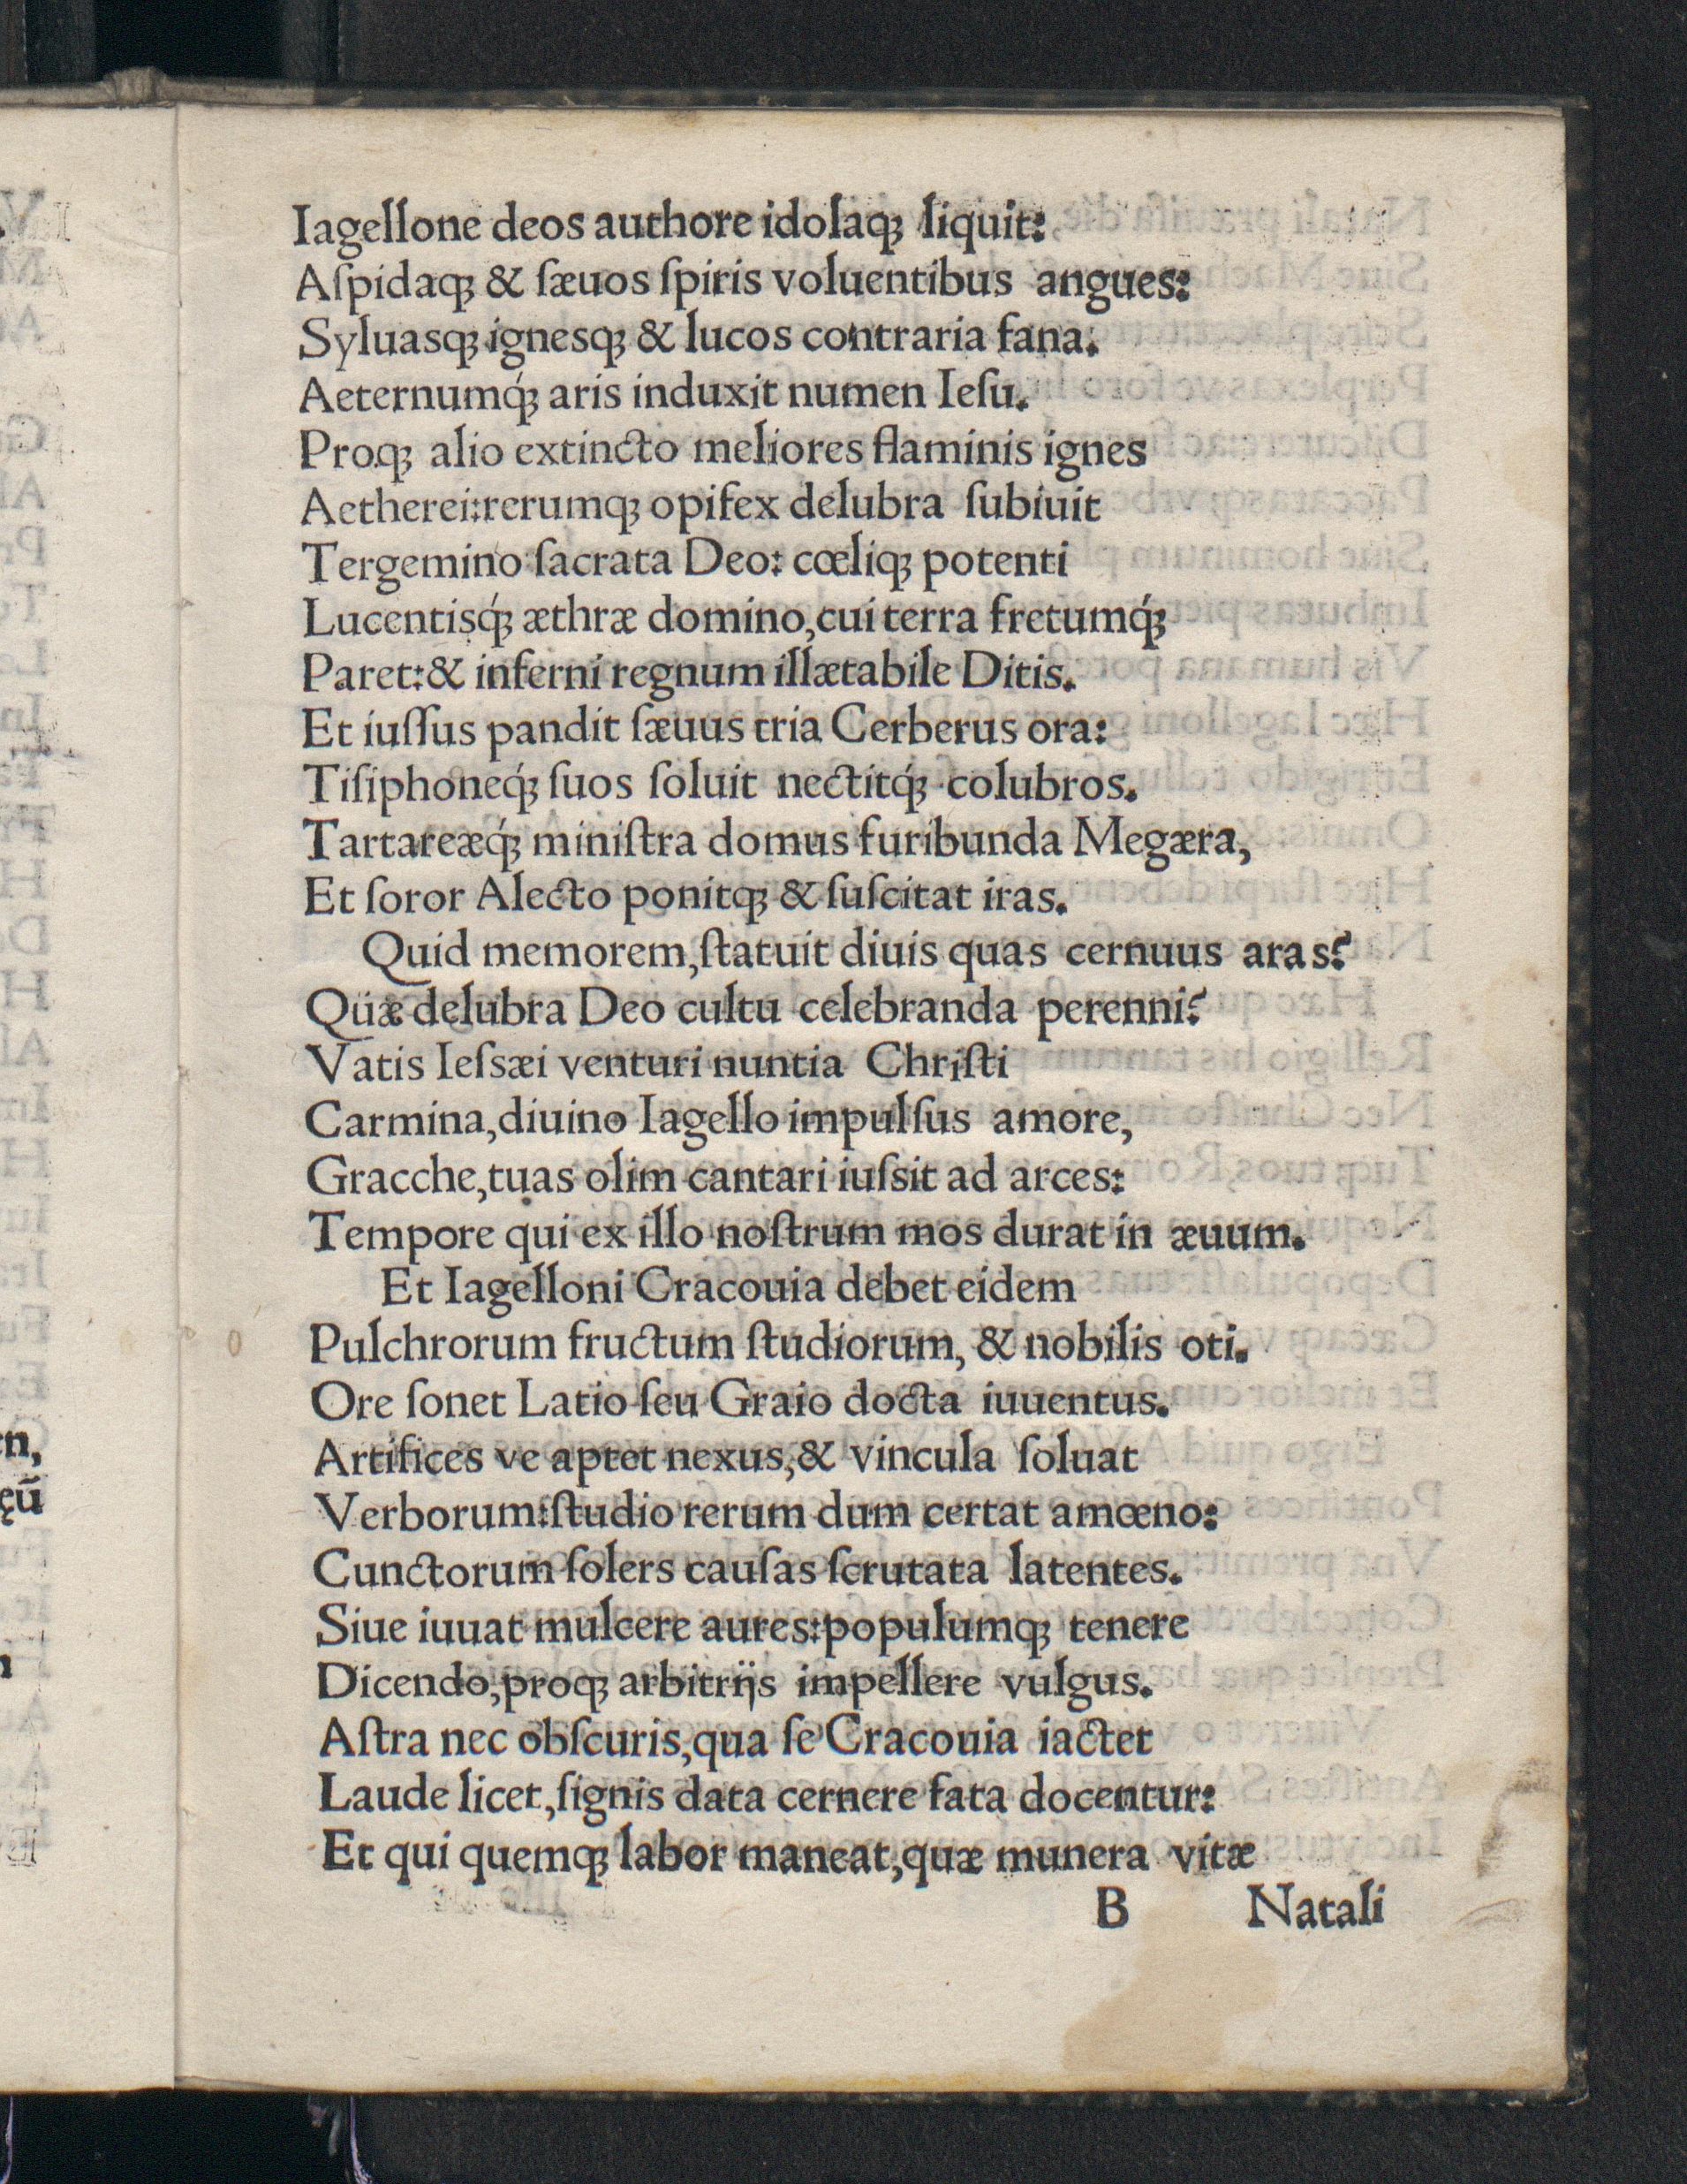 Iagellone deos authore idolaqꝫ liquit:
Aſpidaqꝫ & ſæuos ſpiris voluentibus angues:
Syluasqꝫ ignesqꝫ & lucos contraria fana.
Aeternumq́ꝫ aris induxit numen Ieſu.
Proqꝫ alio extincto meliores flaminis ignes
Aetherei:rerumqꝫ opifex delubra ſubiuit
Tergemino ſacrata Deo: cœliqꝫ potenti
Lucentisq́ꝫ æthræ domino,cui terra fretumq́ꝫ
Paret:& inferni regnum illætabile Ditis.
Et iuſſus pandit ſæuus tria Cerberus ora:
Tiſiphoneq́ꝫ ſuos ſoluit nectitq́ꝫ colubros.
Tartareæq́ꝫ miniſtra domus furibunda Megæra,
Et ſoror Alecto ponitqꝫ & ſuſcitat iras.
Quid memorem,ſtatuit diuis quas cernuus aras?
Qüæ delubra Deo cultu celebranda perenni?
Vatis Ieſsæi venturi nuntia Chriſti
Carmina,diuino Iagello impulſus amore,
Gracche,tuas olim cantari iuſsit ad arces:
Tempore qui ex illo noſtrum mos durat in æuum.
Et Iagelloni Cracouia debet eidem
Pulchrorum fructum ſtudiorum, & nobilis oti.
Ore ſonet Latio ſeu Graio docta iuuentus.
Artifices ve aptet nexus,& vincula ſoluat
Verborum:ſtudio rerum dum certat amœno:
Cunctorum ſolers cauſas ſcrutata latentes.
Siue iuuat mulcere aures:populumqꝫ tenere
Dicendo,proqꝫ arbitrijs impellere vulgus.
Aſtra nec obſcuris,qua ſe Cracouia iactet
Laude licet,ſignis data cernere fata docentur:
Et qui quemqꝫ labor maneat,quæ munera vitæ
B Natali